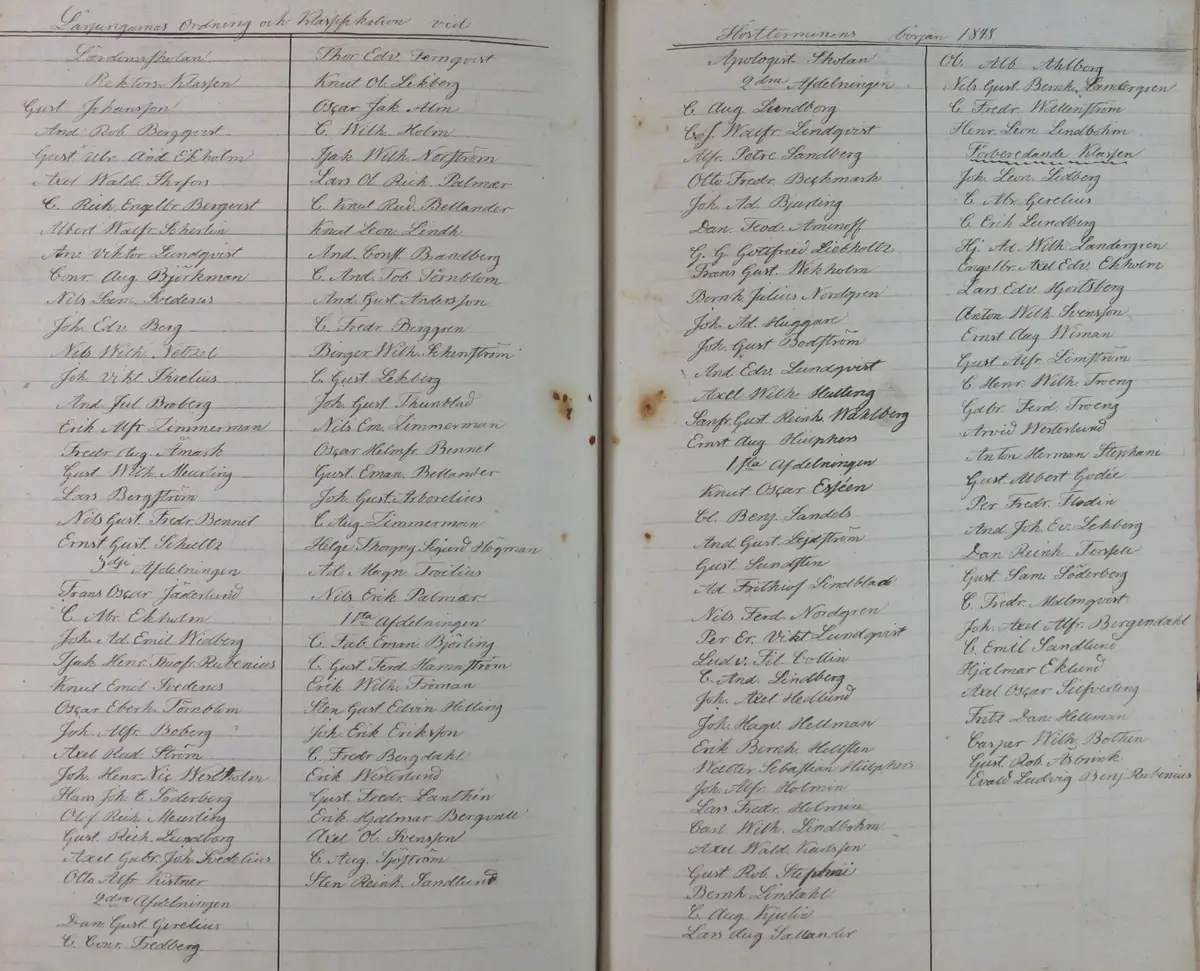 Lärjungarnas Ordning och Klassifikation vid
Lärdomsskolan
Rektors-Klassen
Gust Johansson
And Rob Bergqvist
Gust Ulr And Ekholm
Axel Wald
C. Rich Engelbr Bergvist
Albert Walfr Scherlin
Arv. Viktor Lundqvist
Conr. Aug Björkman
Nils Sam Svedenus
Joh. Edv Berg
Nils Wilh Netzel
Joh. Vikt
And Jul Broberg
Erik Alfr Limmerman
Fredr Aug Åmark
Gust Wilh Meurling
Lars Bergström
Nils Gust Fredr Bennet
Ernst Gust Schultz
3dje Afdelningen
Frans Oscar Jäderlund
C. Abr Ekholm
Joh Ad Emil Widberg
Isak Henr Rubenius
Knut Emil Svedenus
Oscar Eberh Törnblom
Joh. Alfr Boberg
Axel Rud Ström
Joh. Henr. Nic Westholm
Hans Joh C Söderberg
Olof Rich Meurling
Gust. Rich. Lundborg
Axel Gabr. Joh. Svedelius
Otto Alfr Kistner
2dra Afdelningen
Dan Gust Girelius
C. Conr. Fredberg.
Thor Edv Ternqvist
Knut Ol. Lekberg
Oscar Jak Alm
C. Wilh Holm
Isak Wilh Norström
Lars Ol Rich. Palmær
C. Knut Rud. Bellander
Knut Leon Lindh
And. Const. Brandberg
C. And. Tob Törnblom
And Gust Andersson
C. Fredr. Berggren
Birger Wilh. Schenström
C Gust Lekberg
Joh. Gust Thunblad
Nils Em. Limmerman
Oscar Helmfr. Bennet
Gust. Eman Bellander
Joh Gust Arborelius
C Aug Limmerman
Helge Thorny Sigurd Högman
Ad. Magn Troilius
Nils Erik Palmær
1sta Afdelningen
C. Fab. Eman Björling
C Gust Ferd Hammström
Erik Wilh Froman
Sten Gust Edvin Helling
Joh Erik Eriksson
C. Fredr Bergdahl
Erik Westerlund
Gust Fredr. Lanthén
Erik Hjalmar Bergvall
Axel Ol. Svensson
C. Aug Sjöström
Sten Reinh Sandlund
Höstterminens början 1848
Apologist Skolan
2dra Afdelningen
C. Aug Lundborg
C. J. Walfr Lindqvist
Alfr. Petre Sandberg
Otto Fredr Beckmark
Joh. Ad Bjurling
Dan. Teod Aminoff
G. G Gottfried Liebholtz
Frans Gust. Wekholm
Bernh Julius Nordgren
Joh. Ad Huggare
Joh. Gust Bodström
And Edv Lundqvist
Axel Wilh Helleng
Sanfr. Gust Reinh Wahlberg
Ernst Aug Hülphers
1sta Afdelningen
Knut Oscar Esséen
Cl. Benj Sandels
And Gust Lejdström
Gust Sundsten
Ad Frithiof Lindblad
Nils Ferd Nordgren
Per Er. Vikt Lundqvist
Ludv. Fil Collin
C And. Lindberg
Joh. Axel Hedlund
Joh. Hagv. Hellman
Erik Bernh. Hellsten
Walter Sebastian Hülphers
Joh. Alfr. Holmin
Lars Fredr. Holmin
Carl Wilh. Lindbohm
Axel Wald Karlsson
Gust Rob Stephni
Bernh Lindahl
C. Aug Kjulin
Lars Aug Sallander
Ol Alb Ahlberg
Nils Gust Bernh. Landergren
C. Fredr. Wallenström
Henr Leon Lindbohm
Förberedande Klassen
Joh. Leon Lidberg
C Abr Girelius
C Erik Lundberg
Hj. Ad Wilh Landergren
Engelbr Axel Edv Ekholm
Lars Edv Hjortsberg
Anton Wilh Svensson
Ernst Aug Wiman
Gust Alfr Limström
C. Henr Wilh Troeng
Gabr Ferd Troeng
Arvid Westerlund
Anton Herman Stephani
Gust Albert Godée
Per Fredr. Flodin
And. Joh Ev. Lekberg
Dan Reinh Forssell
Gust Sam. Söderberg
C. Fredr. Malmqvist
Joh. Axel Alfr. Bergendahl
C. Emil Sandlund
Hjalmar Eklund
Axel Oscar Silfverling
Frits Dan Hellman
Casper Wilh Bothén
Gust Rob Åsbrink
Evald Ludvig Benj Rubenius